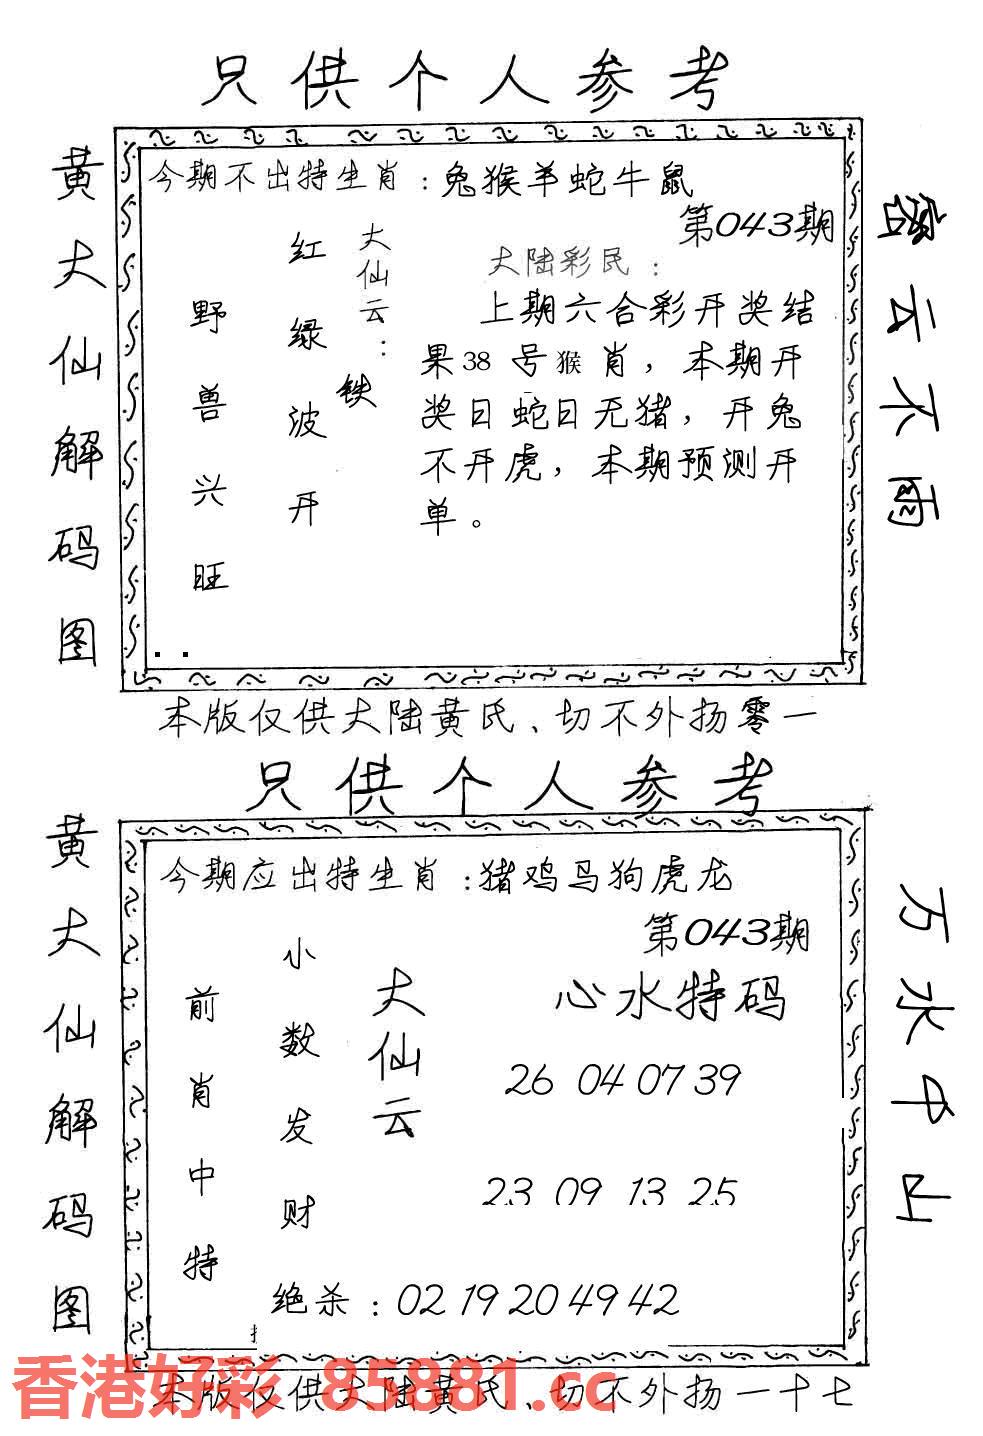 只供个人参考
黄大仙解码图
今期不出特生肖：兔猴羊蛇牛鼠
第043期
大仙云：
红绿波开
铁
野兽兴旺
大陆彩民：
上期六合彩开奖结
果38号猴肖，本期开
奖日蛇日无猪，开兔
不开虎，本期预测开
单。
密云不雨
本版仅供大陆黄氏、切不外扬零一
只供个人参考
黄大仙解码图
今期应出特生肖：猪鸡马狗虎龙
第043期
心水特码
大仙云
小数发财
前肖中特
26 04 07 39
23 09 13 25
绝杀：02 19 20 49 42
万水中山
本版仅供大陆黄氏、切不外扬一十七
香港好彩 85881.cc